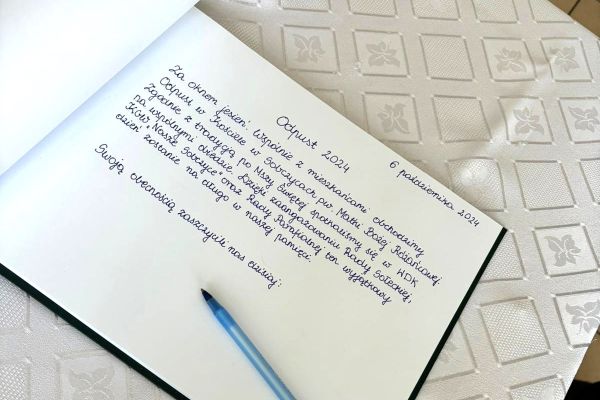 6 października 2024
Odpust 2024
Za oknem jesień. Wspólnie z mieszkańcami obchodzimy
Odpust w Kościele w Sobczycach pw. Matki Bożej Różańcowej.
Zgodnie z tradycją po Mszy Świętej spotkaliśmy się w WDK
na wspólnym obiedzie. Dzięki zaangażowaniu Rady Sołeckiej,
KGW "Nasze Sobczyce" oraz Rady Parafialnej ten wyjątkowy
dzień zostanie na długo w naszej pamięci.
Swoją obecnością zaszczycili nas dzisiaj: